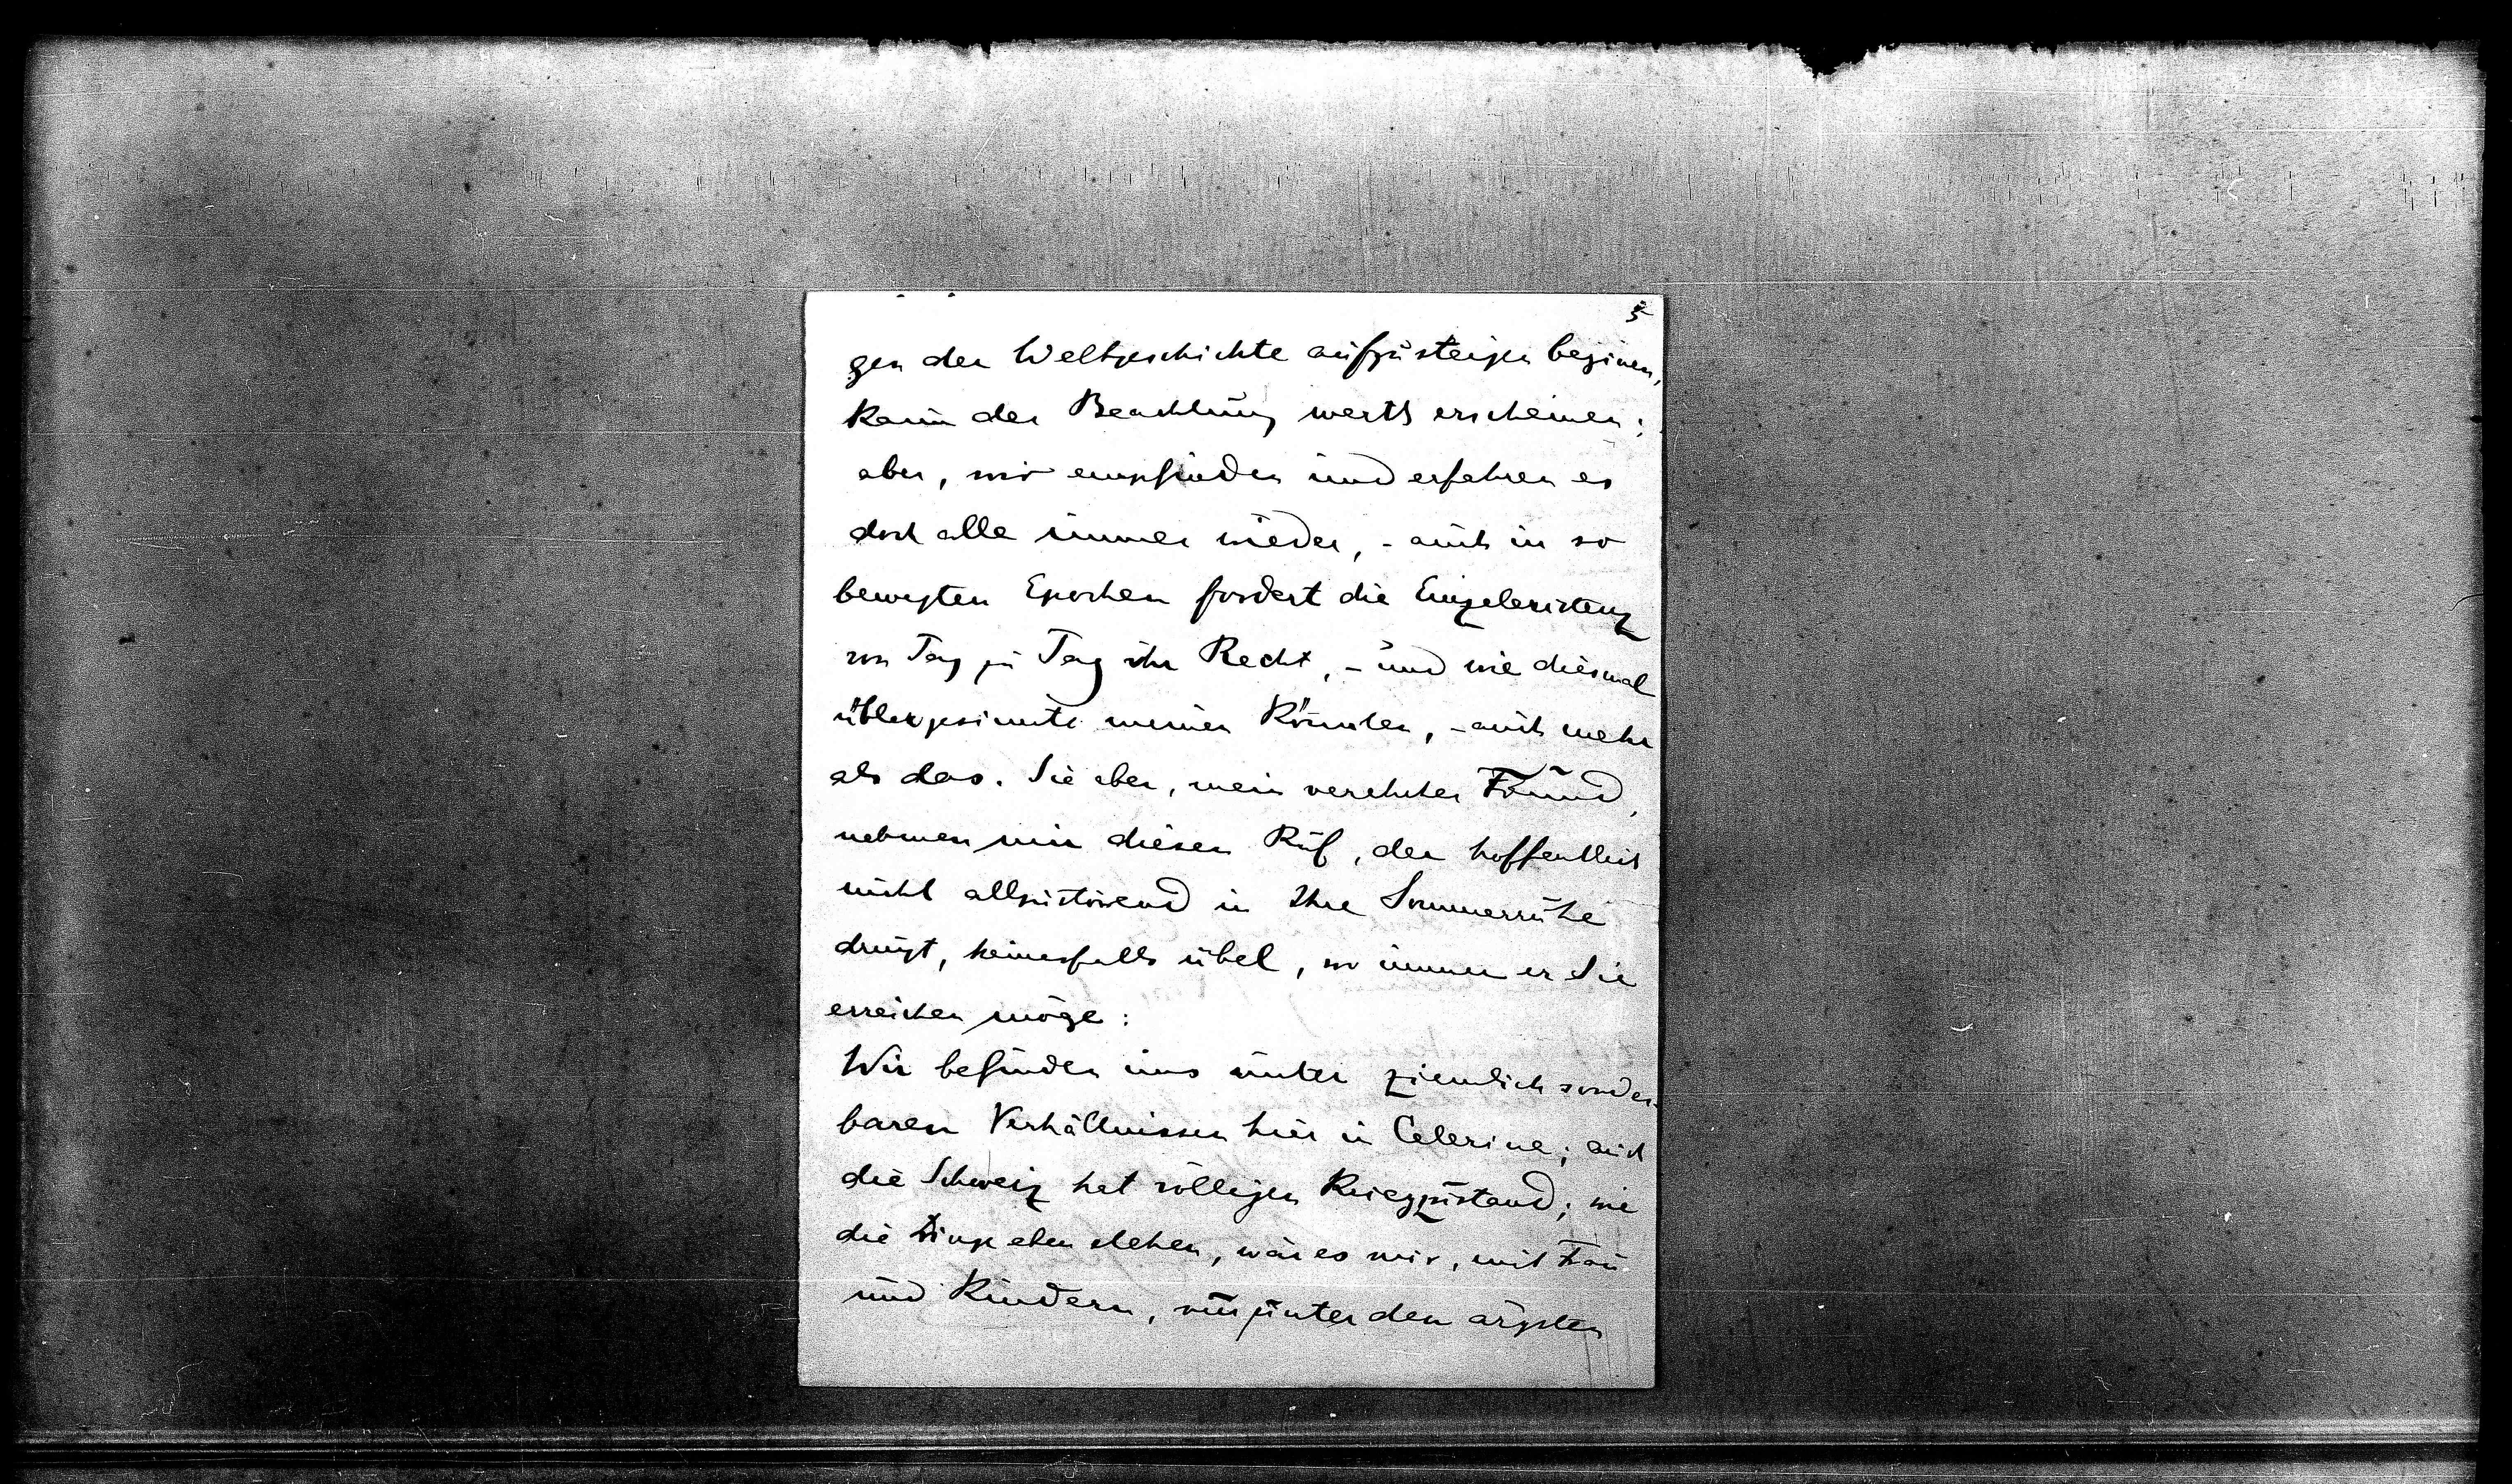 3
gen der Weltgeschichte aufzusteigen beginnen,
kaum der Beachtung werth erscheinen;
aber, wir empfinden und erfahren es
doch alle immer wieder, - auch in so
bewegten Epochen fordert die Einzelexistenz
von Tag zu Tag ihr Recht, - und wie diesmal
übergesinnte meinen könnten, - auch mehr
als das. Sie aber, mein verehrter Freund,
nehmen mir diesen Ruf, der hoffentlich
nicht allzustörend in Ihre Sommerruhe
dringt, keinesfalls übel, wo immer er Sie
erreichen möge:
Wir befinden uns unter ziemlich sonder-
baren Verhältnissen hier in Celerina; auch
die Schweiz hat völligen Kriegszustand; wie
die Dinge eben stehen, wär es mir, mit Frau
und Kindern, nur unter den ärgsten